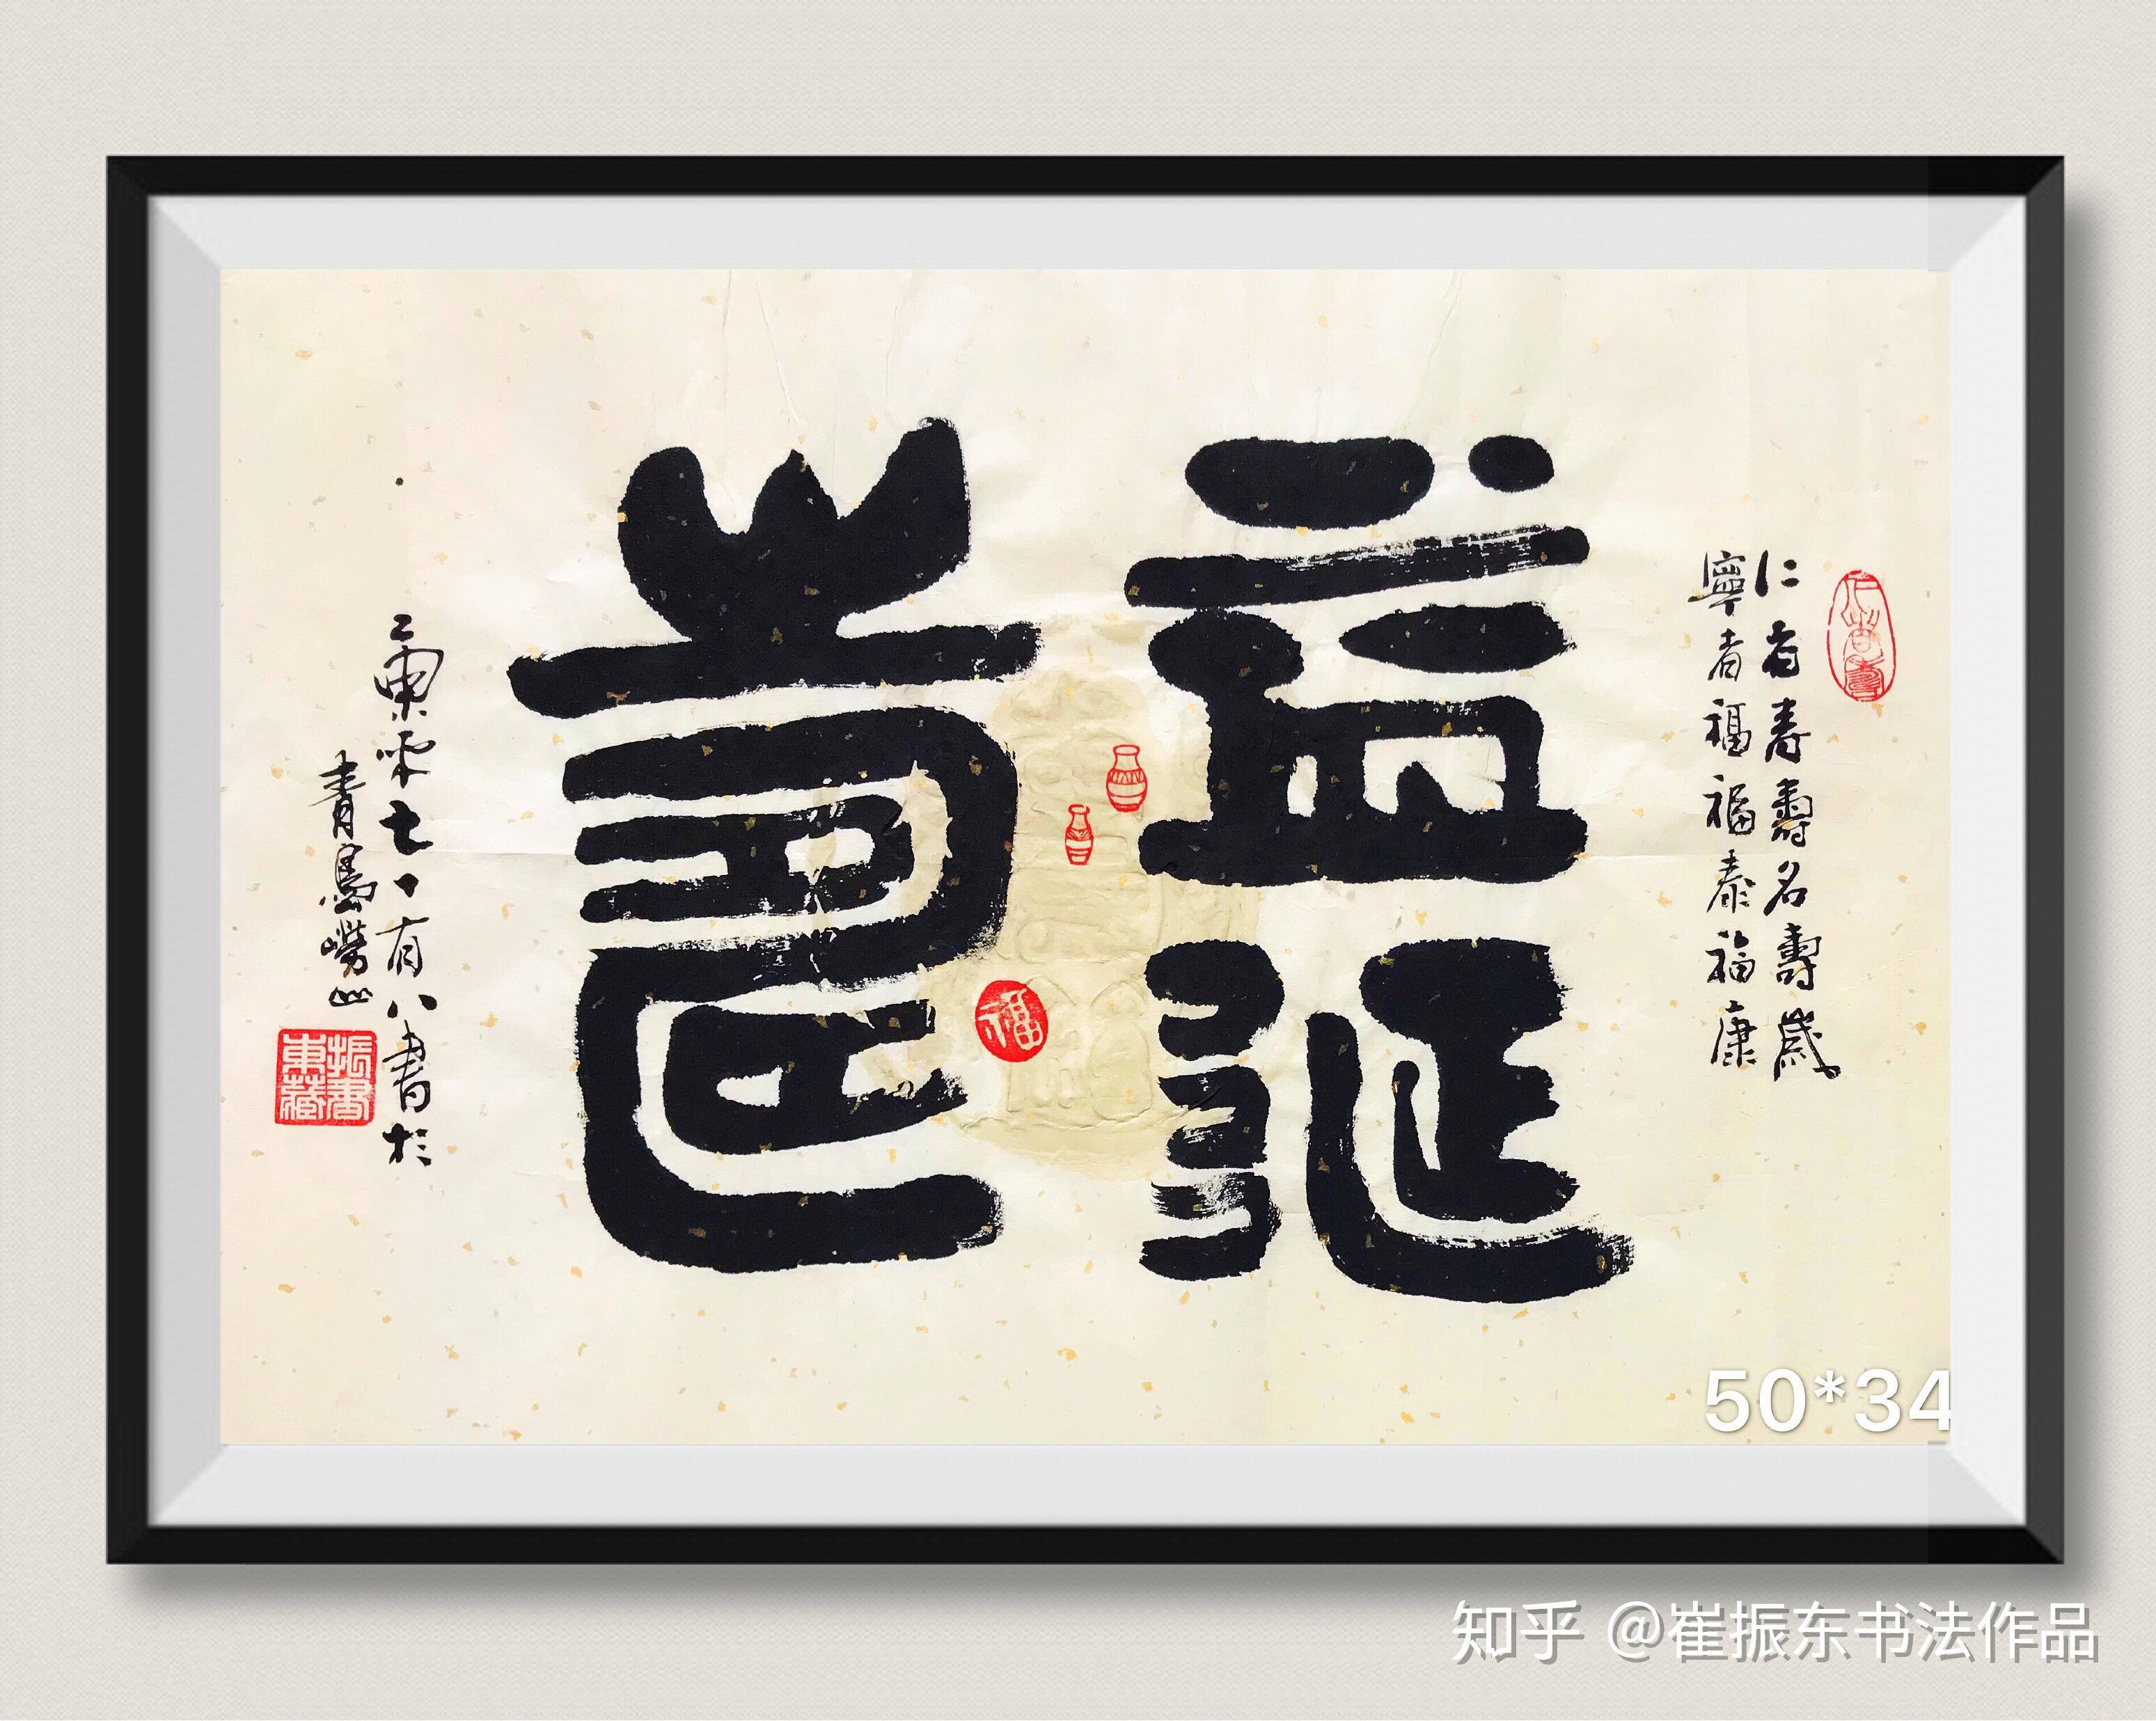 益延
壽
仁者寿壽名壽歲
寧者福福泰福康
七十有八書於
青島嶗山
仁者壽
福
振書
東藏
50*34
知乎 @崔振东书法作品